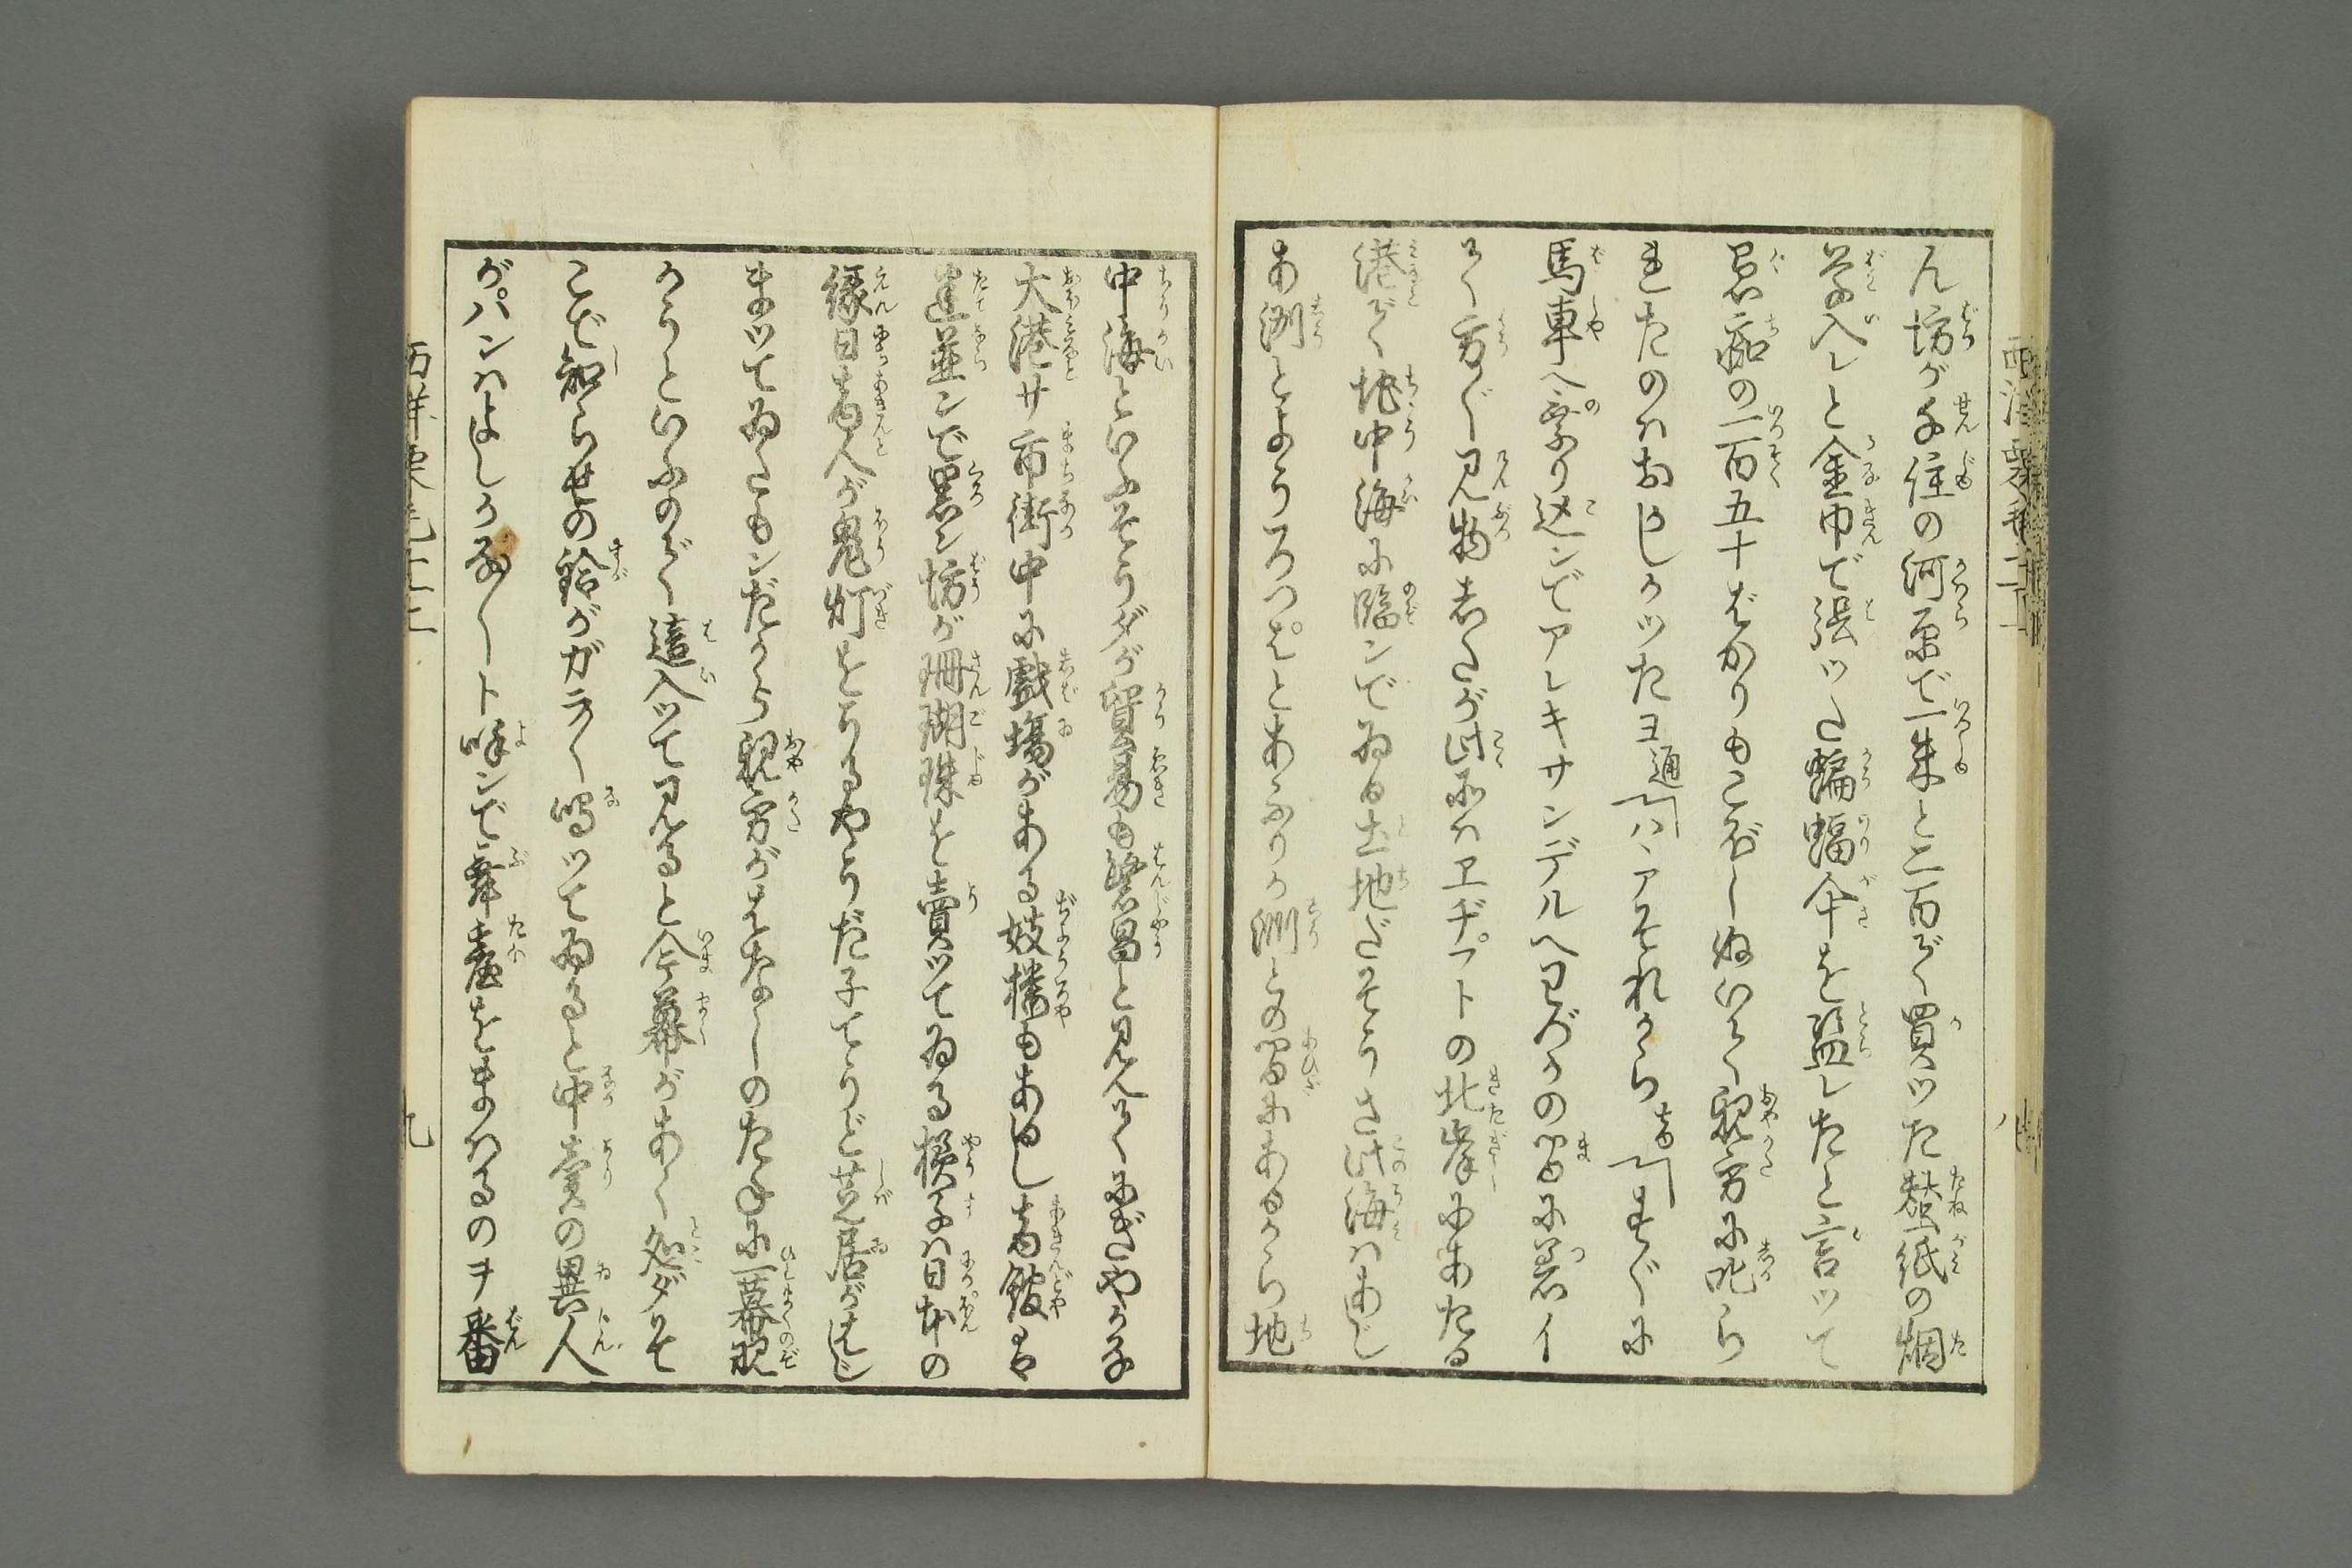 ん坊が千住の河原で一朱と二百ぐ買ッた蚕紙の烟
草入レと金巾で張ッた蝙蝠傘を盗レたと言ッて
愚痴の一百五十ばかりもこぼしぬいて親方に叱ら
れたのハおかしかッたヨ通「ハヽアそれから はな「すぐに
馬車へ乗り込ンでアレキサンデルへわづかの間に着イ
て方〻見物したが此所ハヱヂプトの北岸にあたる
港で地中海に臨ンでゐる土地だそうさ此海ハあじ
あ洲とようろつぱとあふりか洲との間にあるから地
中海といふそうダが貿易も繁昌と見へてにぎやかな
大港サ市街中に戯場がある妓楼もあるし商館も
建並ンで黒ン坊が珊瑚珠を賣ッてゐる様子ハ日本の
縁日商人が鬼灯をうるやうだ子てうど芝居がはじ
まッてゐたもンだから親方がはなしのたねに一幕覗
かうといふので這入ッて見ると今幕があく処ダそ
こで知らせの鈴がガラ〳〵鳴ッてゐると中賣の異人
がパンハよしかな〳〵ト呼ンで舞臺をまハるのヲ番